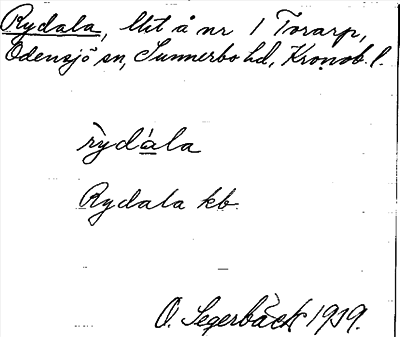 Rydala, lht å nr 1 Torarp,
Odensjö sn, Sunnerbo hd, Kronob. l.
rỳdála
Rydala kb
O. Segerbäck 1919.